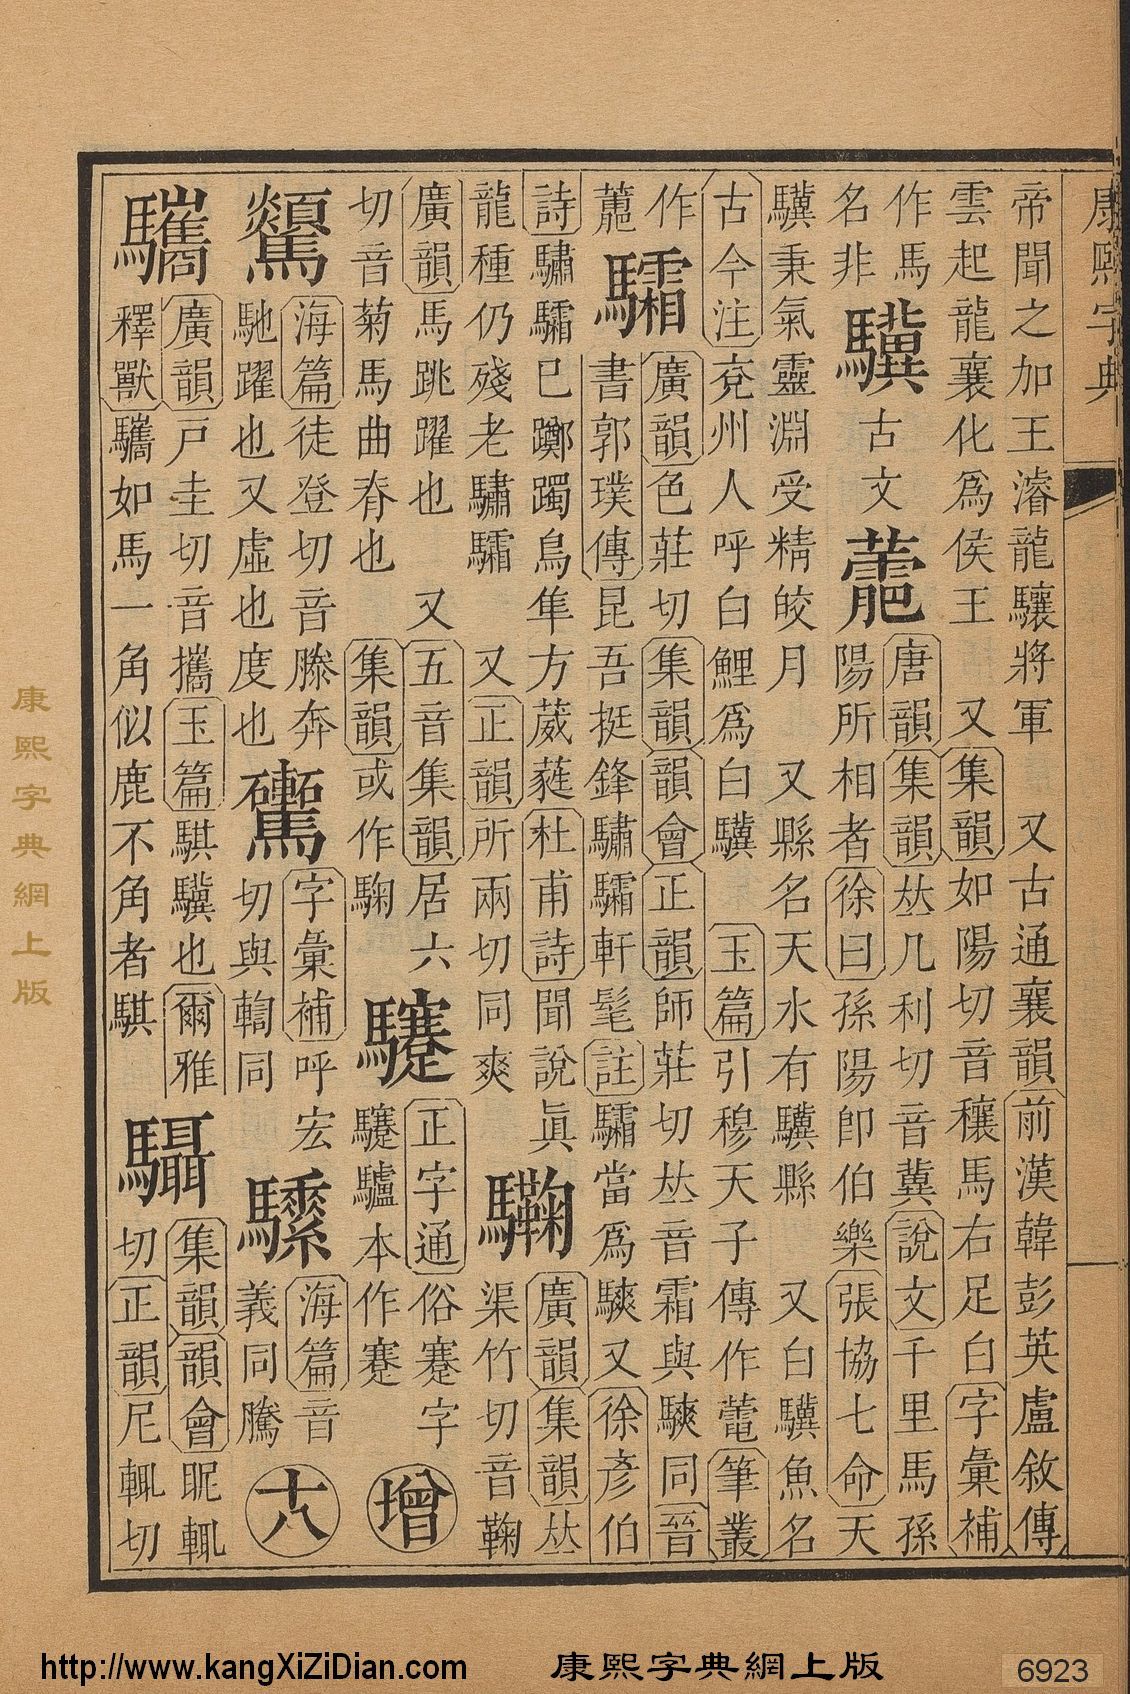 康熙字典
帝聞之加王濬龍驤將軍 又古通襄韻前漢韓彭英盧敘傳
雲起龍襄化爲侯王 又集韻如陽切音穰馬右足白字彙補
作馬
名非
驥
古文
唐韻集韻𠀤几利切音冀說文千里馬孫
陽所相者徐曰孫陽卽伯樂張協七命天
驥秉氣靈淵受精皎月 又縣名天水有驥縣 又白驥魚名
古今注兗州人呼白鯉爲白驥 玉篇引穆天子傳作 筆叢
作
驦
廣韻色莊切集韻韻會正韻師莊切𠀤音霜與騻同晉
書郭璞傳昆吾挺鋒驌驦軒髦註驦當爲騻又徐彥伯
詩驌驦已躑躅鳥隼方葳蕤杜甫詩聞說眞
龍種仍殘老驌驦 又正韻所兩切同爽
驧
廣韻集韻𠀤
渠竹切音鞠
廣韻馬跳躍也 又五音集韻居六
切音菊馬曲脊也 集韻或作
正字通俗蹇字
驢本作蹇
增
海篇徒登切音滕奔
馳躍也又虛也度也
字彙補呼宏
切與輷同
海篇音
義同騰
十八
驨
廣韻戸圭切音攜玉篇騏驥也爾雅
釋獸驨如馬一角似鹿不角者騏
集韻韻會昵輒
切正韻尼輒切
康熙字典網上版
http://www.kangXiZiDian.com
康熙字典網上版
6923